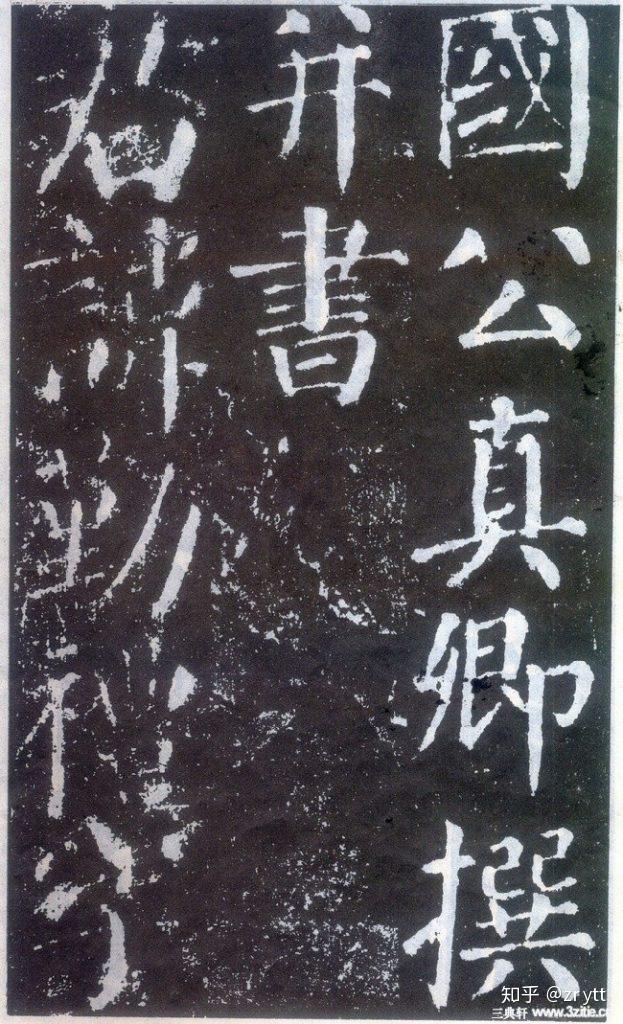 國公真卿撰
并書
君諱勤禮字
知乎 @zrytt
三典轩 www.3zitie.c